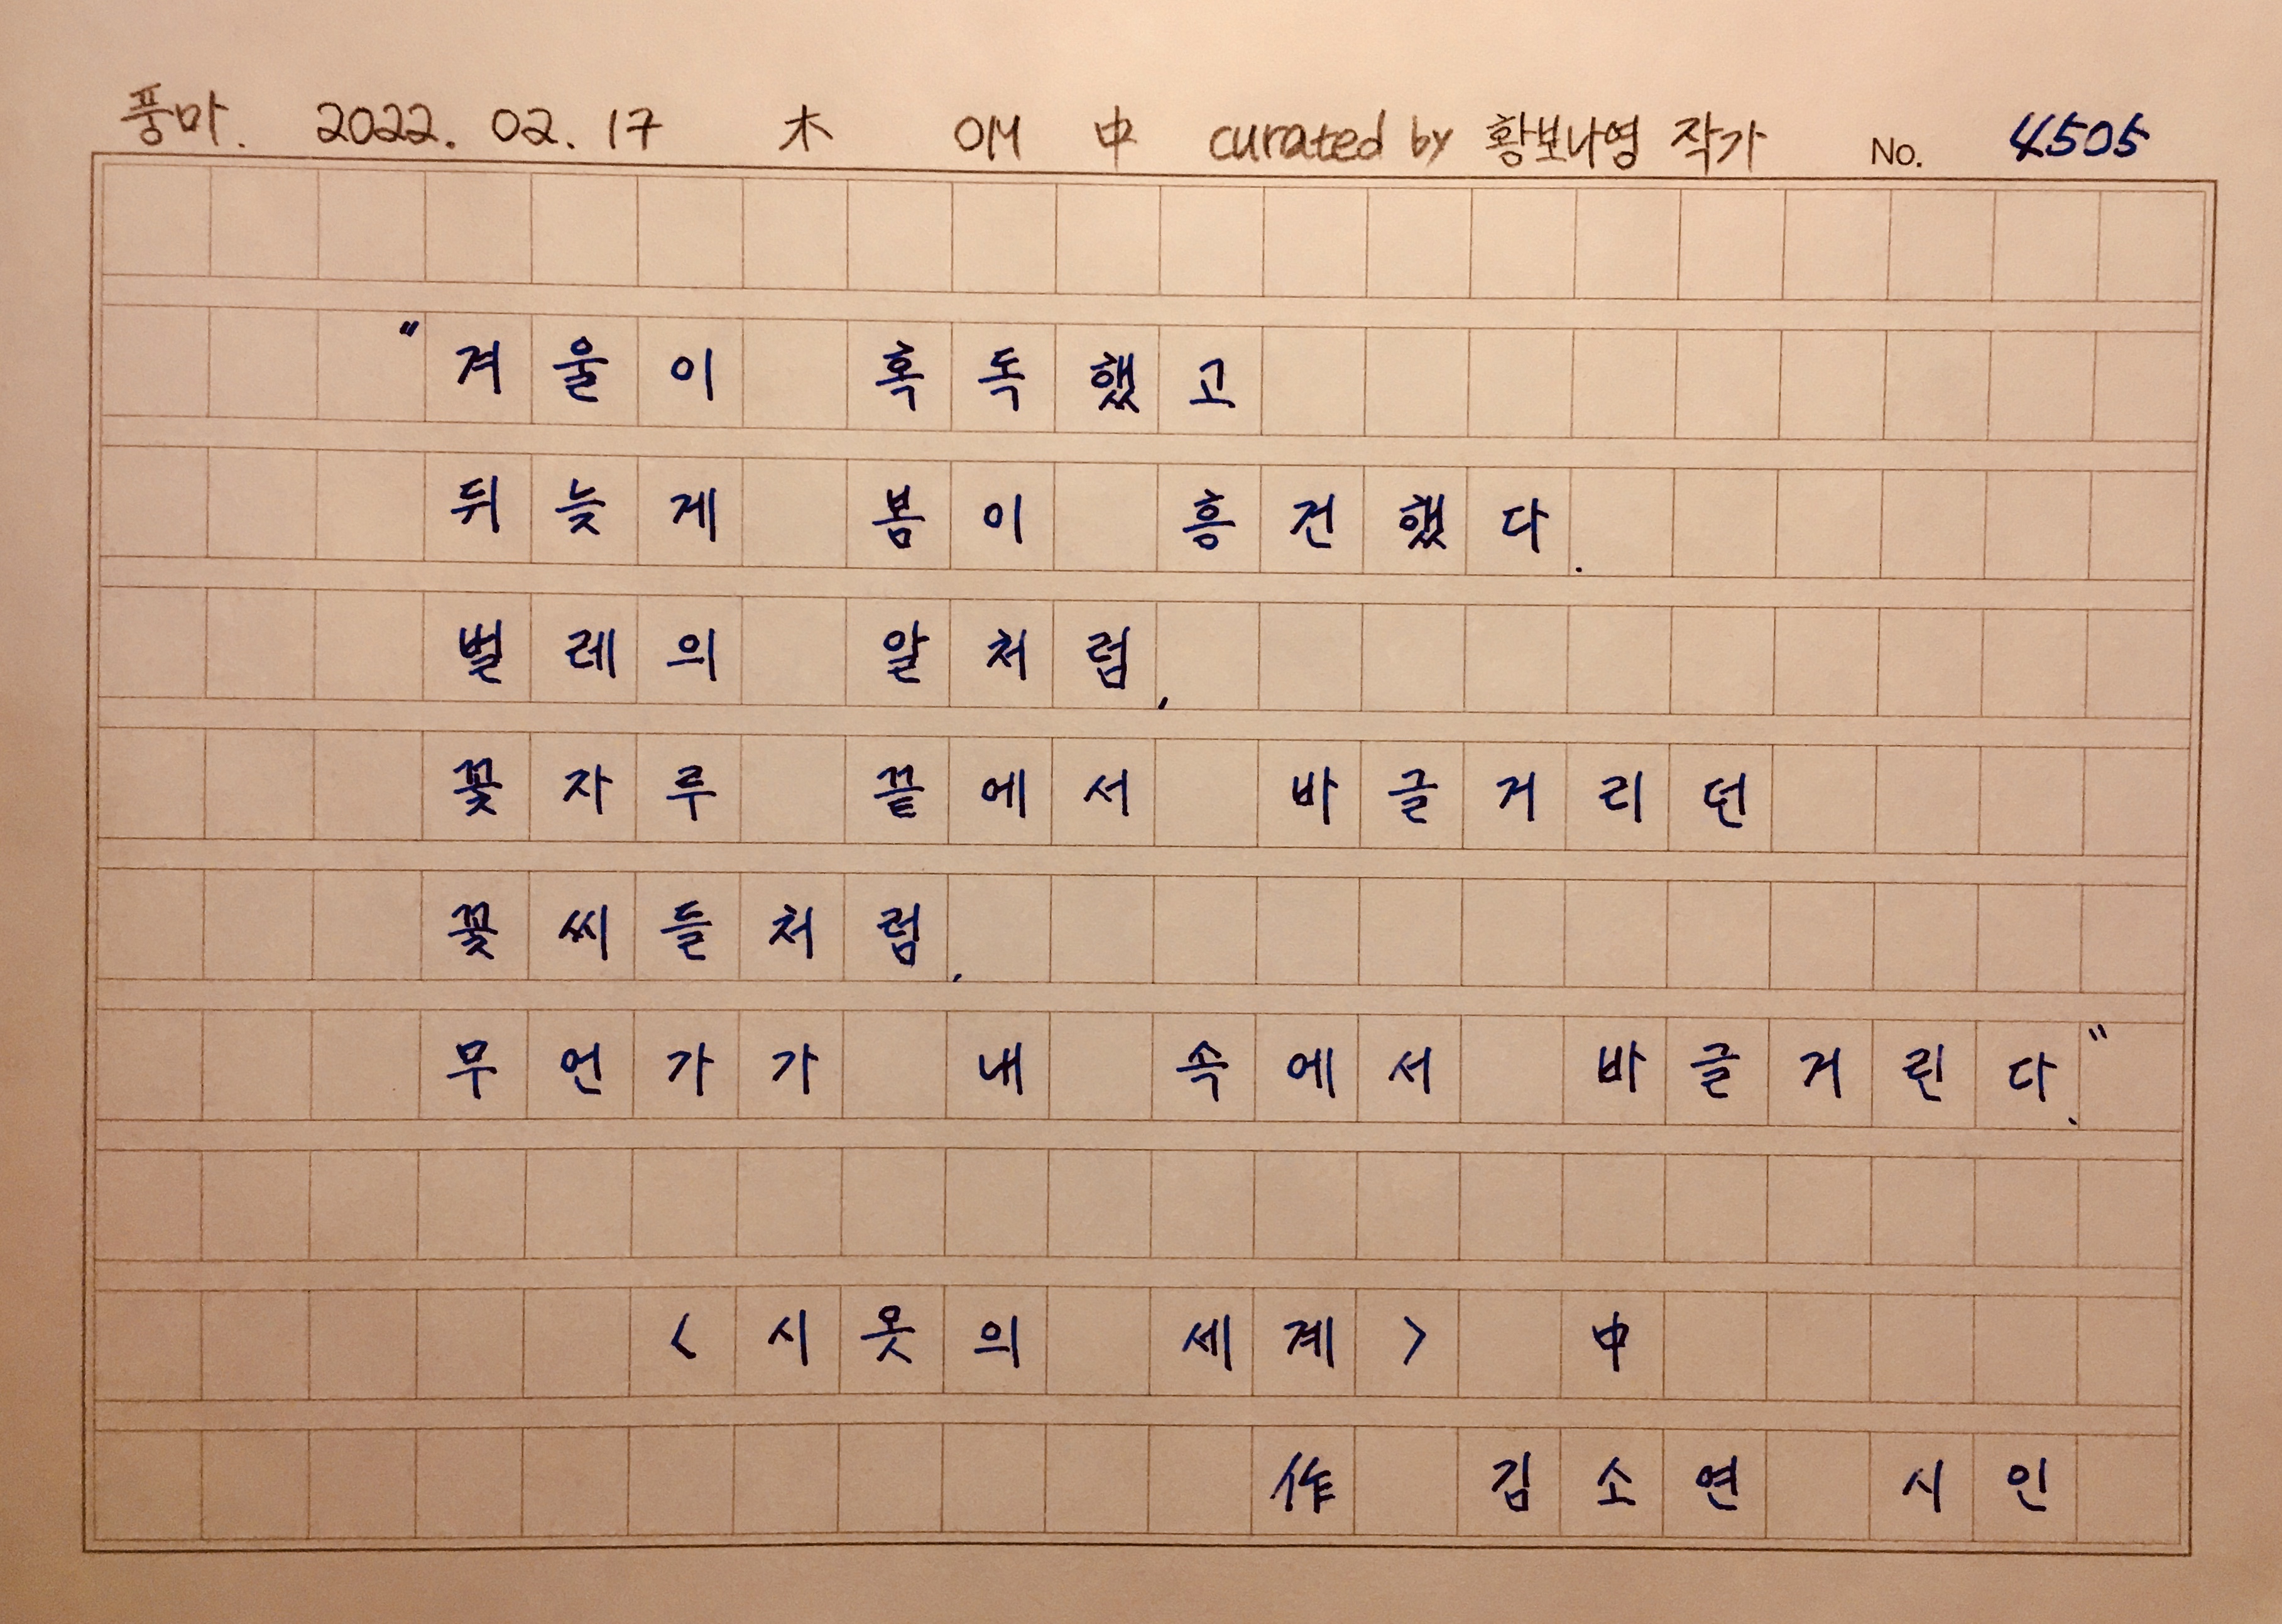 풍마. 2022. 02. 17 木 OM 中 curated by 황보나영 작가 No. 4505
"겨울이 혹독했고
뒤늦게 봄이 흥건했다.
벌레의 알처럼,
꽃자루 끝에서 바글거리던
꽃씨들처럼,
무언가가 내 속에서 바글거린다."
<시옷의 세계> 中
作 김소연 시인